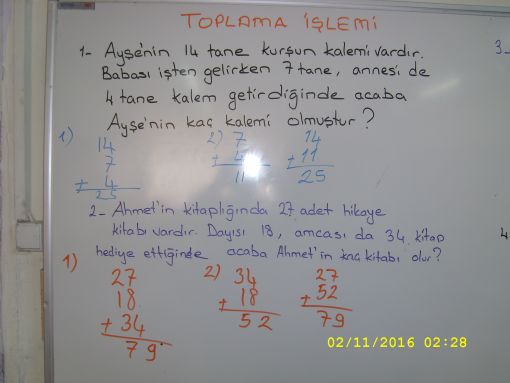 TOPLAMA İŞLEMİ
1- Ayşe'nin 14 tane kurşun kalemi vardır.
Babası işten gelirken 7 tane, annesi de
4 tane kalem getirdiğinde acaba
Ayşe'nin kaç kalemi olmuştur?
1) 2) 7 14
14 + 4 + 11
7 11 25
+ 4
25
2- Ahmet'in kitaplığında 27 adet hikaye
kitabı vardır. Dayısı 18, amcası da 34 kitap
hediye ettiğinde acaba Ahmet'in kaç kitabı olur?
1) 2) 34 27
27 + 18 + 52
18 52 79
+ 34
79
3-
4.
02/11/2016 02:28